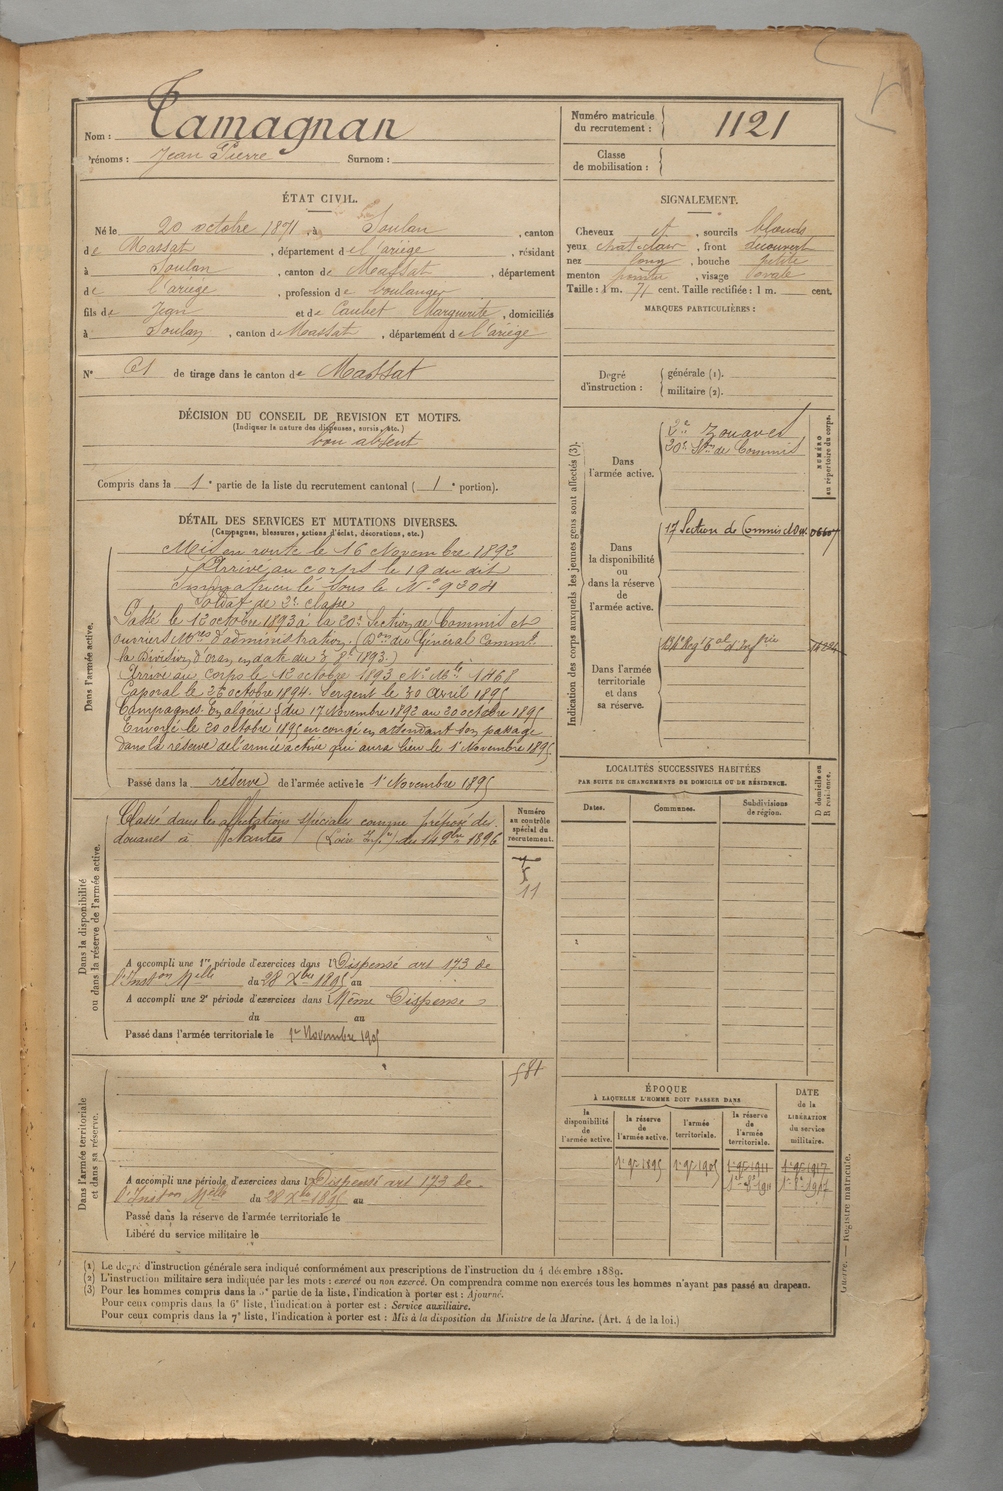 Nom : Tamagnan
Prénoms : Jean Pierre Surnom :
Numéro matricule du recrutement : 1121
Classe de mobilisation :
ÉTAT CIVIL.
Né le 20 octobre 1871, à Soulan, canton
de Massat, département de l'ariège, résidant
à Soulan, canton de Massat, département
de l'ariège, profession de boulanger
fils de Jean et de Caubet Marguerite, domiciliés
à Soulan, canton de Massat, département de l'ariège
N° 61 de tirage dans le canton de Massat
SIGNALEMENT.
Cheveux et, sourcils blonds
yeux chat. clair, front découvert
nez long, bouche petite
menton pointu, visage ovale
Taille : 1 m. 71 cent. Taille rectifiée : 1 m. cent.
MARQUES PARTICULIÈRES :
Degré d'instruction : générale (1).
militaire (2).
DÉCISION DU CONSEIL DE REVISION ET MOTIFS.
(Indiquer la nature des dispenses, sursis, etc.)
bon absent
Compris dans la 1e partie de la liste du recrutement cantonal ( 1e portion).
DÉTAIL DES SERVICES ET MUTATIONS DIVERSES.
(Campagnes, blessures, actions d'éclat, décorations, etc.)
Dans l'armée active.
Mis en route le 16 Novembre 1892
Arrivé au corps le 19 du dit
Immatriculé sous le N° 9304
Soldat de 2e classe
Passé le 12 octobre 1893 à la 20e Section de Commis et
ouvriers Mres d'administration. (Don du Général Commt
la Division d'Oran en date du 3 8bre 1893.)
Arrivé au corps le 12 octobre 1893 N° Mle 1468
Caporal le 26 octobre 1894. Sergent le 30 Avril 1895
Campagnes. En algérie du 17 Novembre 1892 au 20 octobre 1895
Envoyé le 20 octobre 1895 en congé en attendant son passage
dans la réserve de l'armée active qui aura lieu le 1er Novembre 1895
Passé dans la réserve de l'armée active le 1er Novembre 1895
Indication des corps auxquels les jeunes gens sont affectés (3).
NUMÉRO au répertoire du corps.
Dans l'armée active.
2e Zouaves
20e Son de Commis
Dans la disponibilité ou dans la réserve de l'armée active.
17 Section de Commis et Ouv.
Dans l'armée territoriale et dans sa réserve.
Dans la disponibilité ou dans la réserve de l'armée active.
Classé dans les affectations spéciales comme préposé des
douanes à Nantes (Loire Infre) du 14 9bre 1896
Numéro au contrôle spécial du recrutement.
11
A accompli une 1re période d'exercices dans l Dispensé art 173 de
l'Inston Melle du 28 Xbre 1895 au
A accompli une 2e période d'exercices dans l Même Dispense
du au
Passé dans l'armée territoriale le 1er Novembre 1905
LOCALITÉS SUCCESSIVES HABITÉES
PAR SUITE DE CHANGEMENTS DE DOMICILE OU DE RÉSIDENCE.
Dates. Communes. Subdivisions de région. D domicile ou R résidence.
Dans l'armée territoriale et dans sa réserve.
581
A accompli une période d'exercices dans l Dispensé art 173 de
l'Inston Melle du 28 Xbre 1895 au
Passé dans la réserve de l'armée territoriale le
Libéré du service militaire le
ÉPOQUE
À LAQUELLE L'HOMME DOIT PASSER DANS
DATE de la LIBÉRATION du service militaire.
la disponibilité de l'armée active. la réserve de l'armée active. l'armée territoriale. la réserve de l'armée territoriale.
1er 9bre 1895 1er 9bre 1905 1er 9bre 1911 1er 9bre 1917
1er 8bre 1911 1er 8bre 1917
(1) Le degré d'instruction générale sera indiqué conformément aux prescriptions de l'instruction du 4 décembre 1889.
(2) L'instruction militaire sera indiquée par les mots : exercé ou non exercé. On comprendra comme non exercés tous les hommes n'ayant pas passé au drapeau.
(3) Pour les hommes compris dans la 5e partie de la liste, l'indication à porter est : Ajourné.
Pour ceux compris dans la 6e liste, l'indication à porter est : Service auxiliaire.
Pour ceux compris dans la 7e liste, l'indication à porter est : Mis à la disposition du Ministre de la Marine. (Art. 4 de la loi.)
Guerre. — Registre matricule.